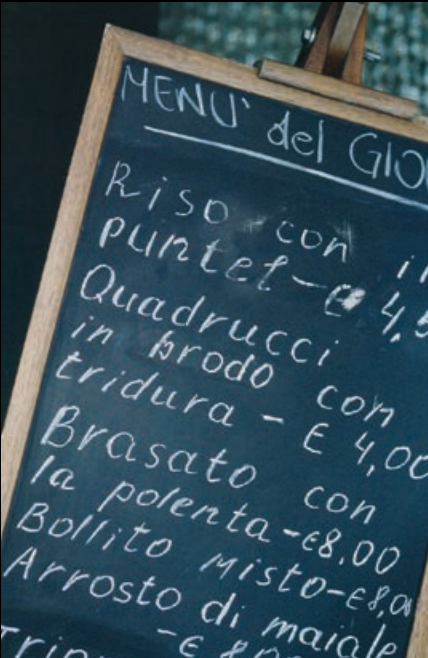 MENU' del GIO
Riso con i
puntel-€ 4,5
Quadrucci
in brodo con
tridura - € 4,00
Brasato con
la polenta-€8,00
Bollito Misto-€8,00
Arrosto di maiale
-€ 8,00
Trip